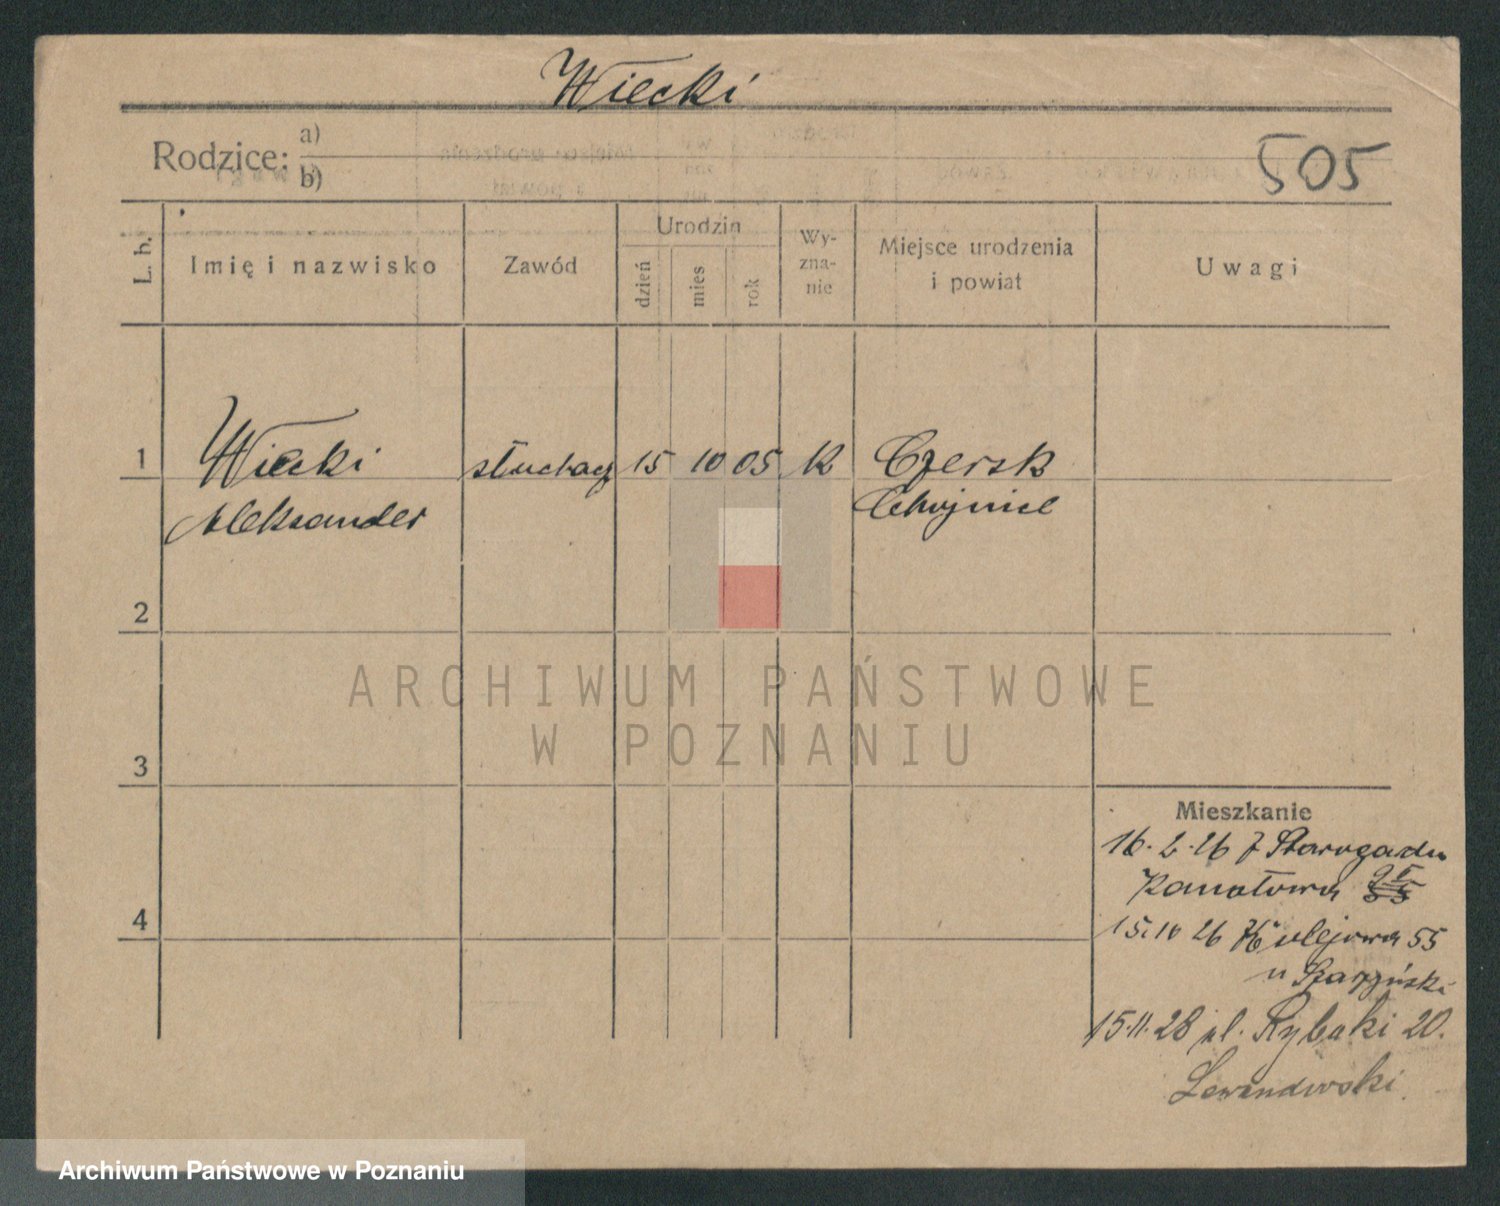 Wiecki
Rodzice: a)
b)
505
L. h.
Imię i nazwisko
Zawód
Urodzin
dzień
mies
rok
Wy-
zna-
nie
Miejsce urodzenia
i powiat
Uwagi
1 Wiecki słuchacz 15 10 05 K Czersk
Aleksander Chojnice
2
3
4
Mieszkanie
16.2.26 z Starogardu
15.10 26 55
15.11.28 ul. Rybaki 20.
Lewandowski
ARCHIWUM PAŃSTWOWE
W POZNANIU
Archiwum Państwowe w Poznaniu